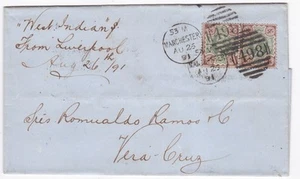 "West Indian"
From Liverpool
Aug 26th/91
53 MANCHESTER
AU 26
91
498
498
Sres Romualdo Ramos & C
Vera-Cruz